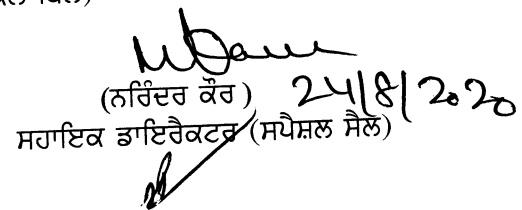 (ਨਰਿੰਦਰ ਕੌਰ ) 24/8/2020
ਸਹਾਇਕ ਡਾਇਰੈਕਟਰ (ਸਪੈਸ਼ਲ ਸੈਲ)